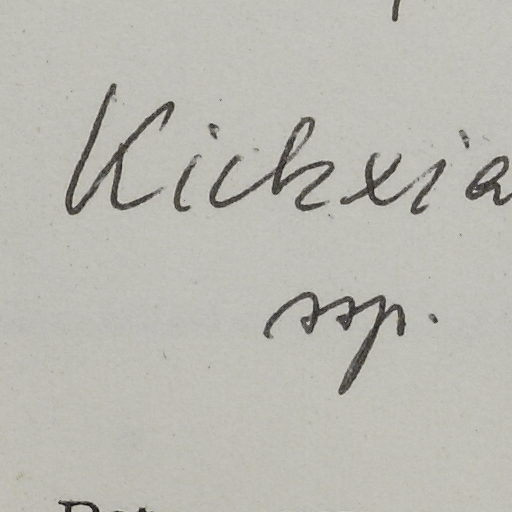 Kickxia
ssp.